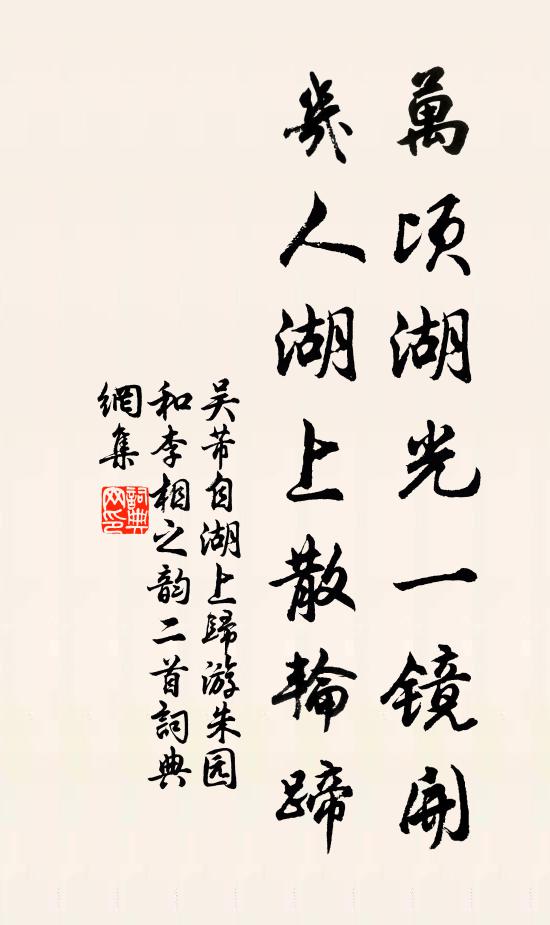 萬頃湖光一镜開
幾人湖上散輪蹄
吴芾自湖上歸游朱园
和李相之韵二首詞典
網集
詞典
网印